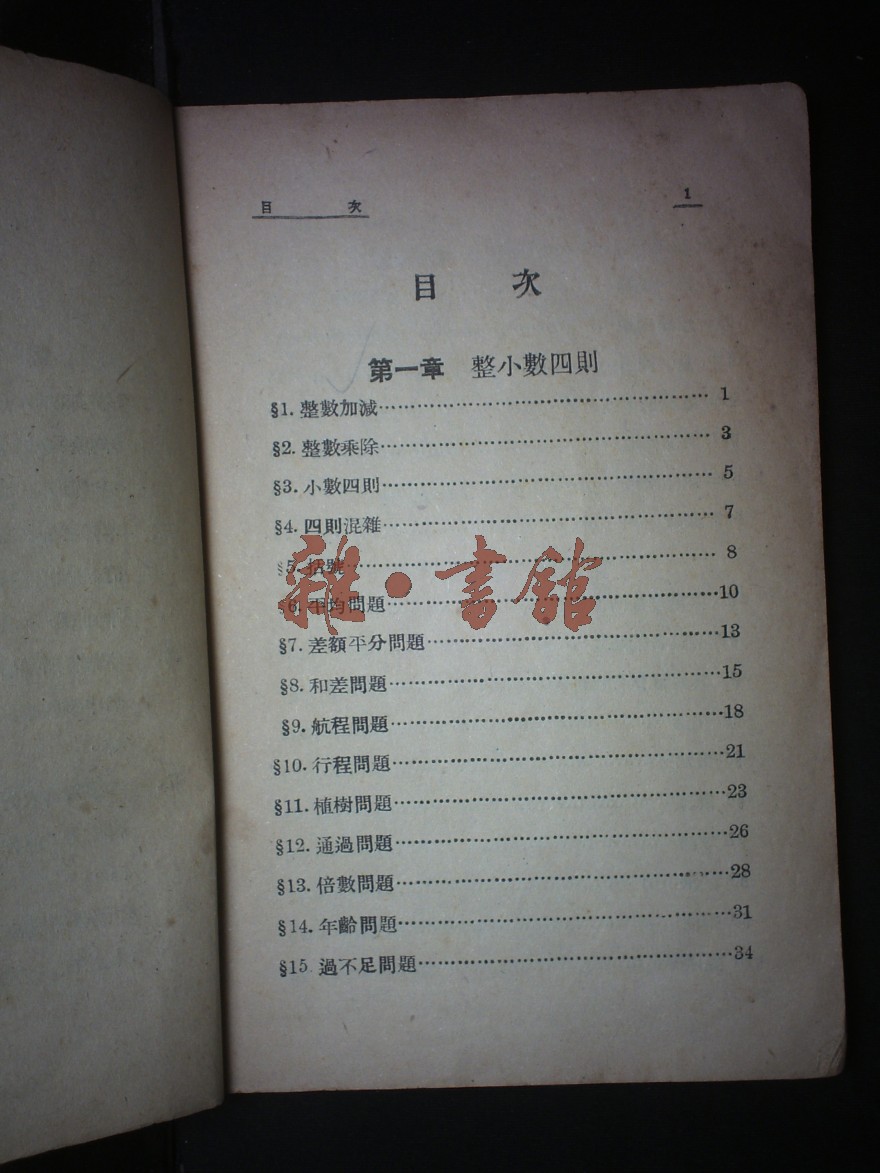 目 次 1
目 次
第一章 整小數四則
§1. 整數加減 1
§2. 整數乘除 3
§3. 小數四則 5
§4. 四則混雜 7
§5. 括號 8
雜·書館
§6. 平均問題 10
§7. 差額平分問題 13
§8. 和差問題 15
§9. 航程問題 18
§10. 行程問題 21
§11. 植樹問題 23
§12. 通過問題 26
§13. 倍數問題 28
§14. 年齡問題 31
§15. 過不足問題 34